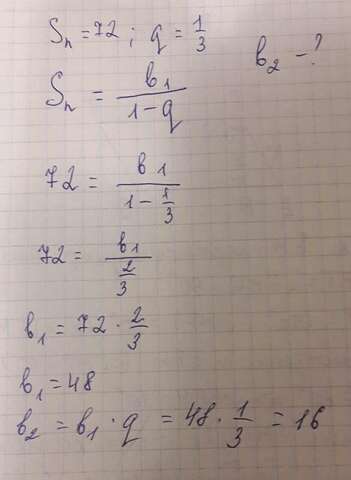 Sₙ = 72 ; q = 1/3
b₂ - ?
Sₙ = b₁/(1-q)
72 = b₁/(1-1/3)
72 = b₁/(2/3)
b₁ = 72 · 2/3
b₁ = 48
b₂ = b₁ · q = 48 · 1/3 = 16